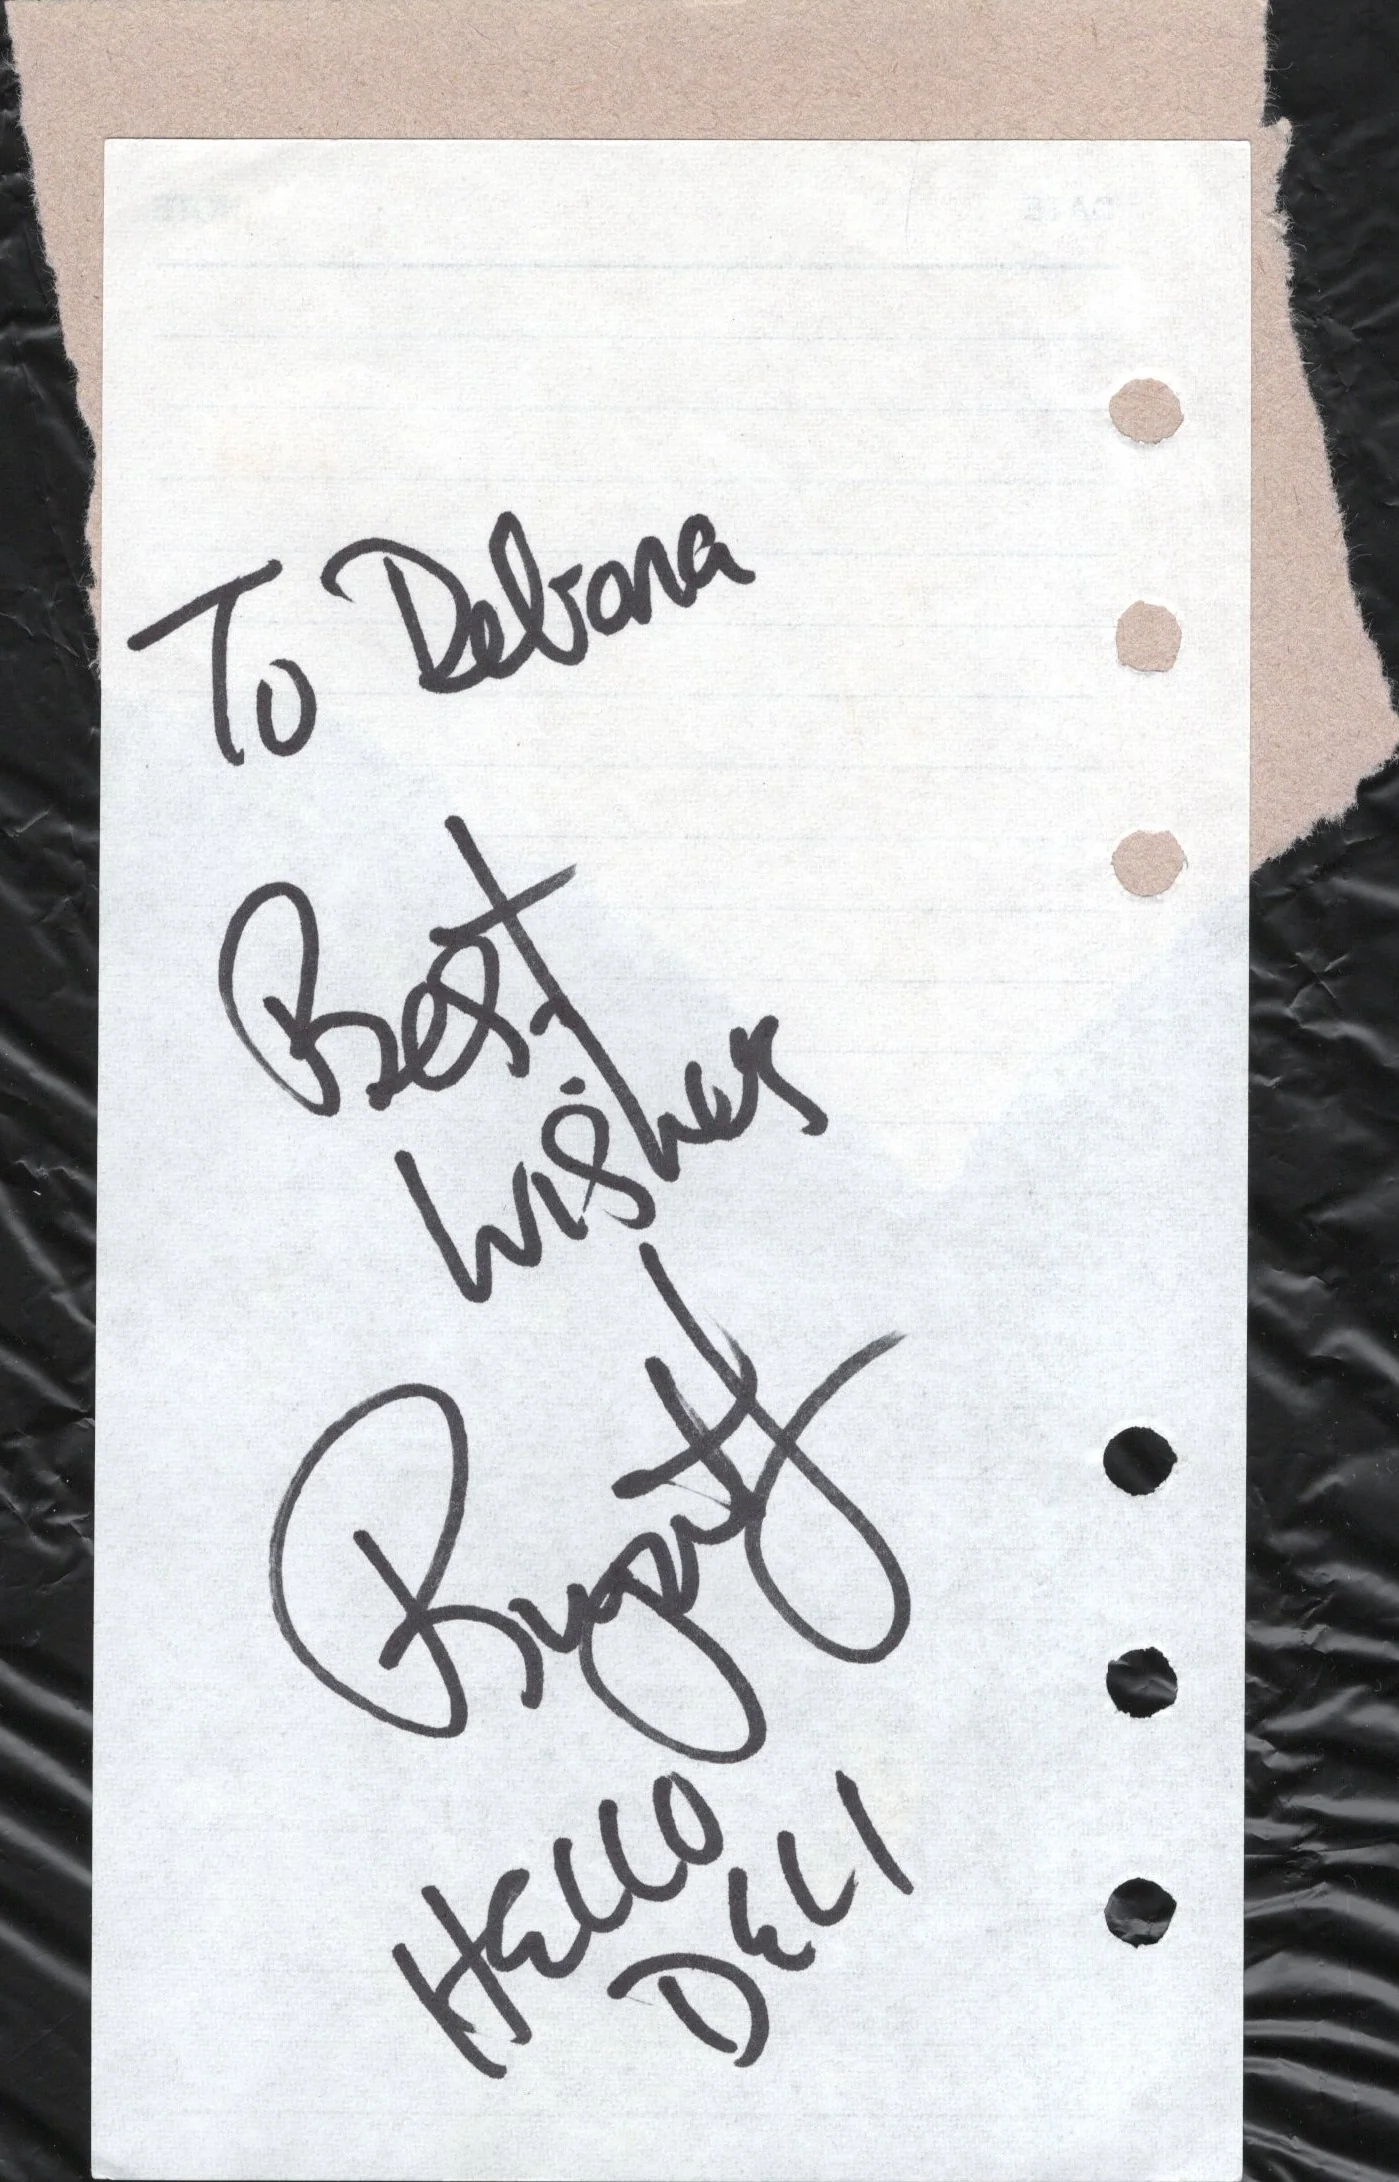 To Debona
Best
Wishes
Rupert
HELLO
DELI